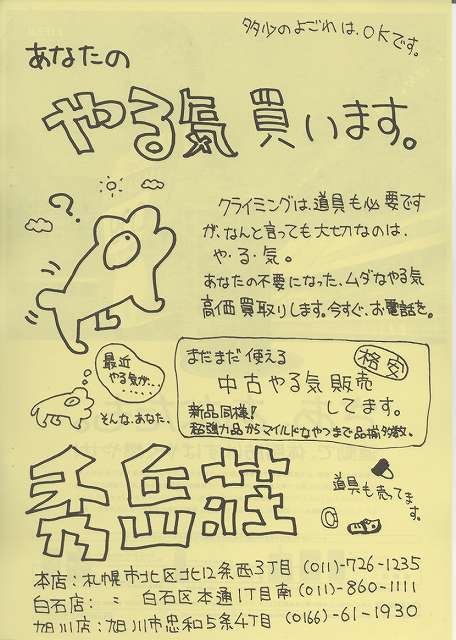 タタ少のよごれは、OKです。
あなたの
やる気買います。
クライミングは、道具も必要です
が、なんと言っても大切なのは、
や・る・気。
あなたの不要になった、ムダなやる気
高価買取りします。今すぐ、お電話を。
?
最近
やる気が…
そんな、あなた、
まだまだ使える
格安
中古やる気販売
してます。
新品同様!
超強力品からマイルドなやつまで品揃多数。
秀岳荘
道具も売ってます。
本店:札幌市北区北12条西3丁目 (011)-726-1235
白石店: 〃 白石区本通1丁目南 (011)-860-1111
旭川店:旭川市忠和5条4丁目 (0166)-61-1930